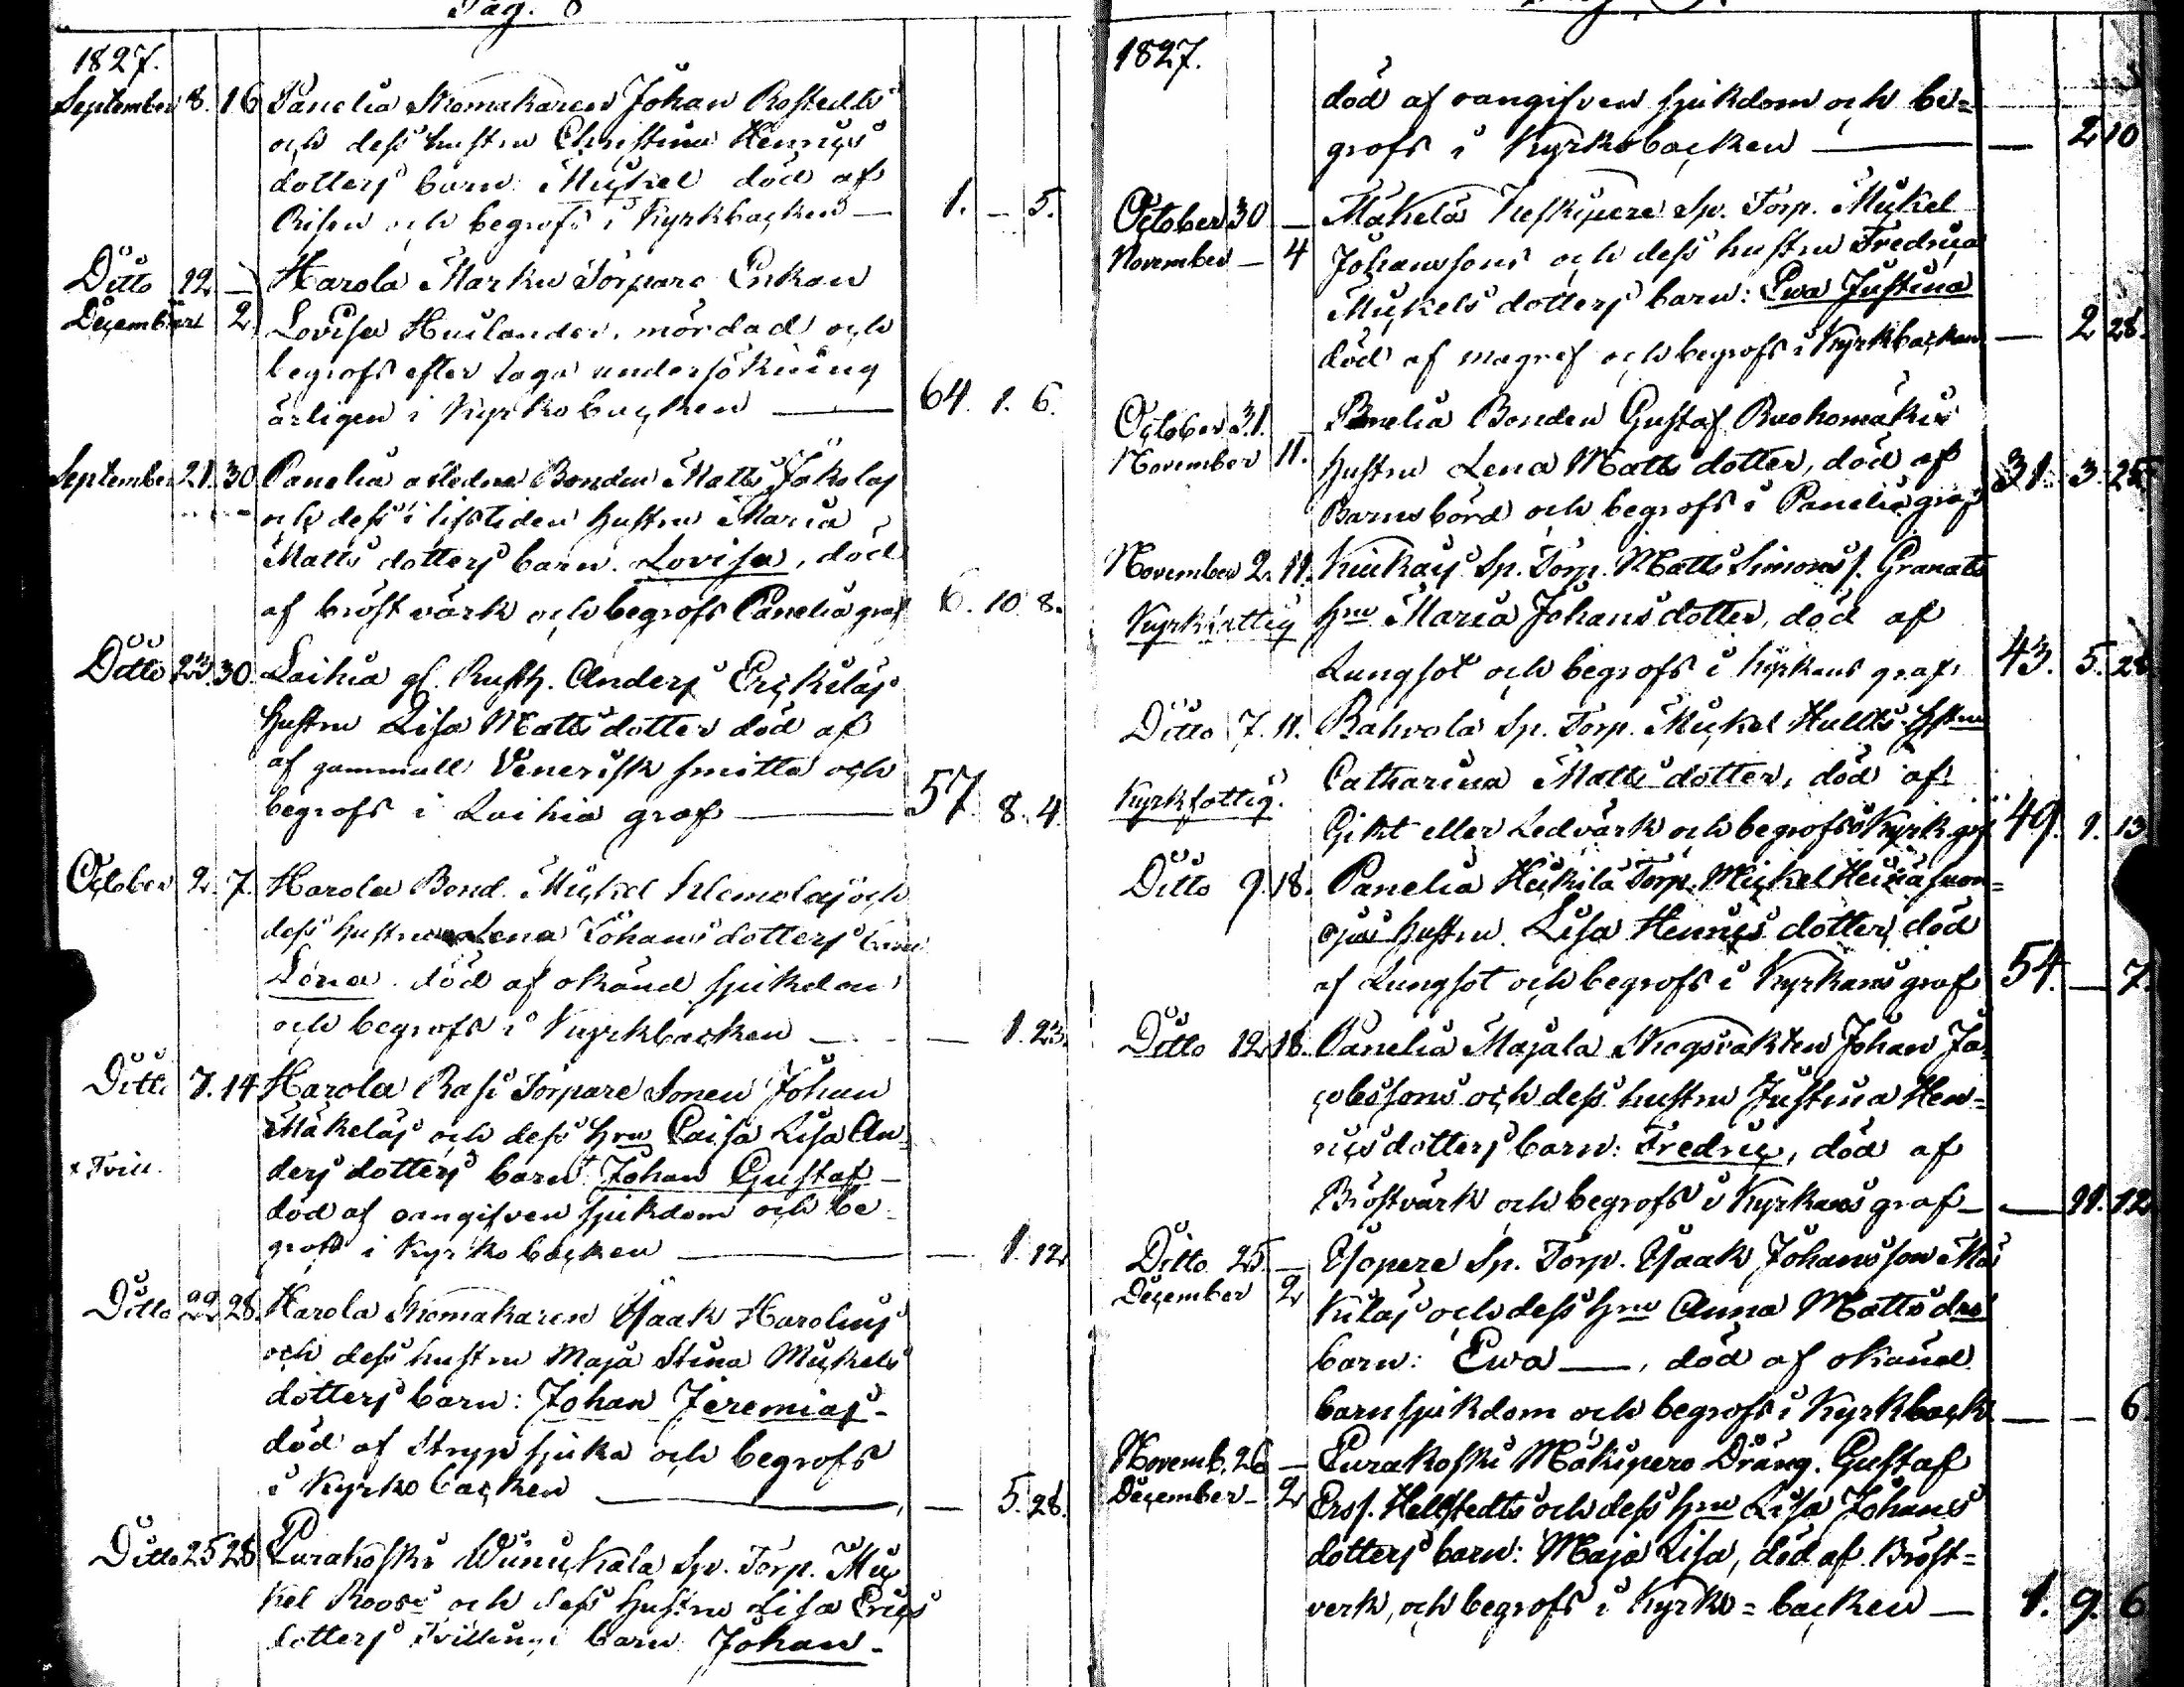 Pag. 8
1827.
September 8. 16 Panelia Skomakaren Johan Rostedts
och dess hustru Christina Henrics
dotters barn: Mickel död af
Risen och begrofs i Kyrkbacken — 1. – 5.
Ditto 12. — Harola Marku Torpare Enkan
December 2 Lovisa Huilander, mördad och
begrofs efter laga undersökning
ärligen i Kyrkobacken — 64. 1. 6.
September 21. 30 Panelia afledne Bonden Matts Jokelas
och dess i lifstiden hustru Maria
Matts dotters barn. Lovisa, död
af bröst värk och begrofs Panelia graf 6. 10. 8.
Ditto 22. 30. Laihia gl. Rusth. Anders Erickiläs
hustru Lisa Matts dotter död af
af gammall Venerisk smitta och
begrofs i Laihia graf — 57. 8. 4.
October 2. 7. Harola Bond. Mickel Klemolas och
dess hustru Lena Johans dotters barn
Lena. död af okänd sjukdom
och begrofs i Kyrkbacken — — 1. 23.
Ditto 7. 14 Harola Rasi Torpare Sonen Johan
Mäkeläs och dess hru Caisa Lisa An
x Tvill. ders dotters barn Johan Gustaf —
död af oangifven sjukdom och be-
grofs i Kyrko backen — — 1. 12
Ditto 22 28. Harola Skomakaren Isaak Harolins
och dess hustru Maja Stina Mickels
dotters barn: Johan Jeremias —
död af Stryp sjuka och begrofs
i Kyrko backen — — 5. 28.
Ditto 25 28 Eurakoski Winickala Sp. Torp. Mic
kel Roosi och dess hustru Lisa Erics
dotters Tvillings barn Johan —
1827.
död af oangifven sjukdom och be-
grofs i Kyrkobacken — — 2 10
October 30 — Mäkelä Sp. Torp. Mickel
November — 4 Johanssons och dess hustru Fredrica
Mickels dotters barn: Ewa Justina
död af magref och begrofs i Kyrkbacken — 2 28.
October 31. Panelia Bonden Gustaf Ruohomäkis
November 11. hustru Lena Matts dotter, död af
Barnsbörd och begrofs i Panelia graf 31. 3. 25
November 2. 11. Kiukais Sp. Torp. Matts Simons s. Granats
Kyrkfattig hru Maria Johans dotter, död af
Lungsot och begrofs i Kyrkans graf. 43. 5. 28
Ditto 7. 11. Rahvola Sp. Torp. Mickel Hullts Hstru
Catharina Matts dotter, död af
Kyrkfattig. Gikt eller Ledvärk och begrofs i Kyrk. graf 49. 1. 13
Ditto 9. 18. Panelia Heikilä Torp. Mickel Heinäsuon=
ojas hustru Lisa Henrics dotter, död
af Lungsot och begrofs i Kyrkans graf 54. — 7.
Ditto 12 18. Panelia Majala Skogsvakten Johan Ja-
cobssons och dess hustru Justina Hen-
rics dotters barn: Fredric, död af
Bröstvärk och begrofs i Kyrkans graf — — 11. 12
Ditto 25. — Isopere Sp. Torp. Isaak Johansson Mas
December 2 kilas och dess hru Anna Matts drs
barn: Ewa —, död af okänd
barnsjukdom och begrofs i Kyrkback — — 6
Novemb. 26 — Eurakoski Mäkipere Dräng. Gustaf
December — 2 Ers s. Hellstedts och dess hru Lisa Johans
dotters barn: Maja Lisa, död af Bröst=
verk, och begrofs i Kyrko=backen — 1. 9. 6